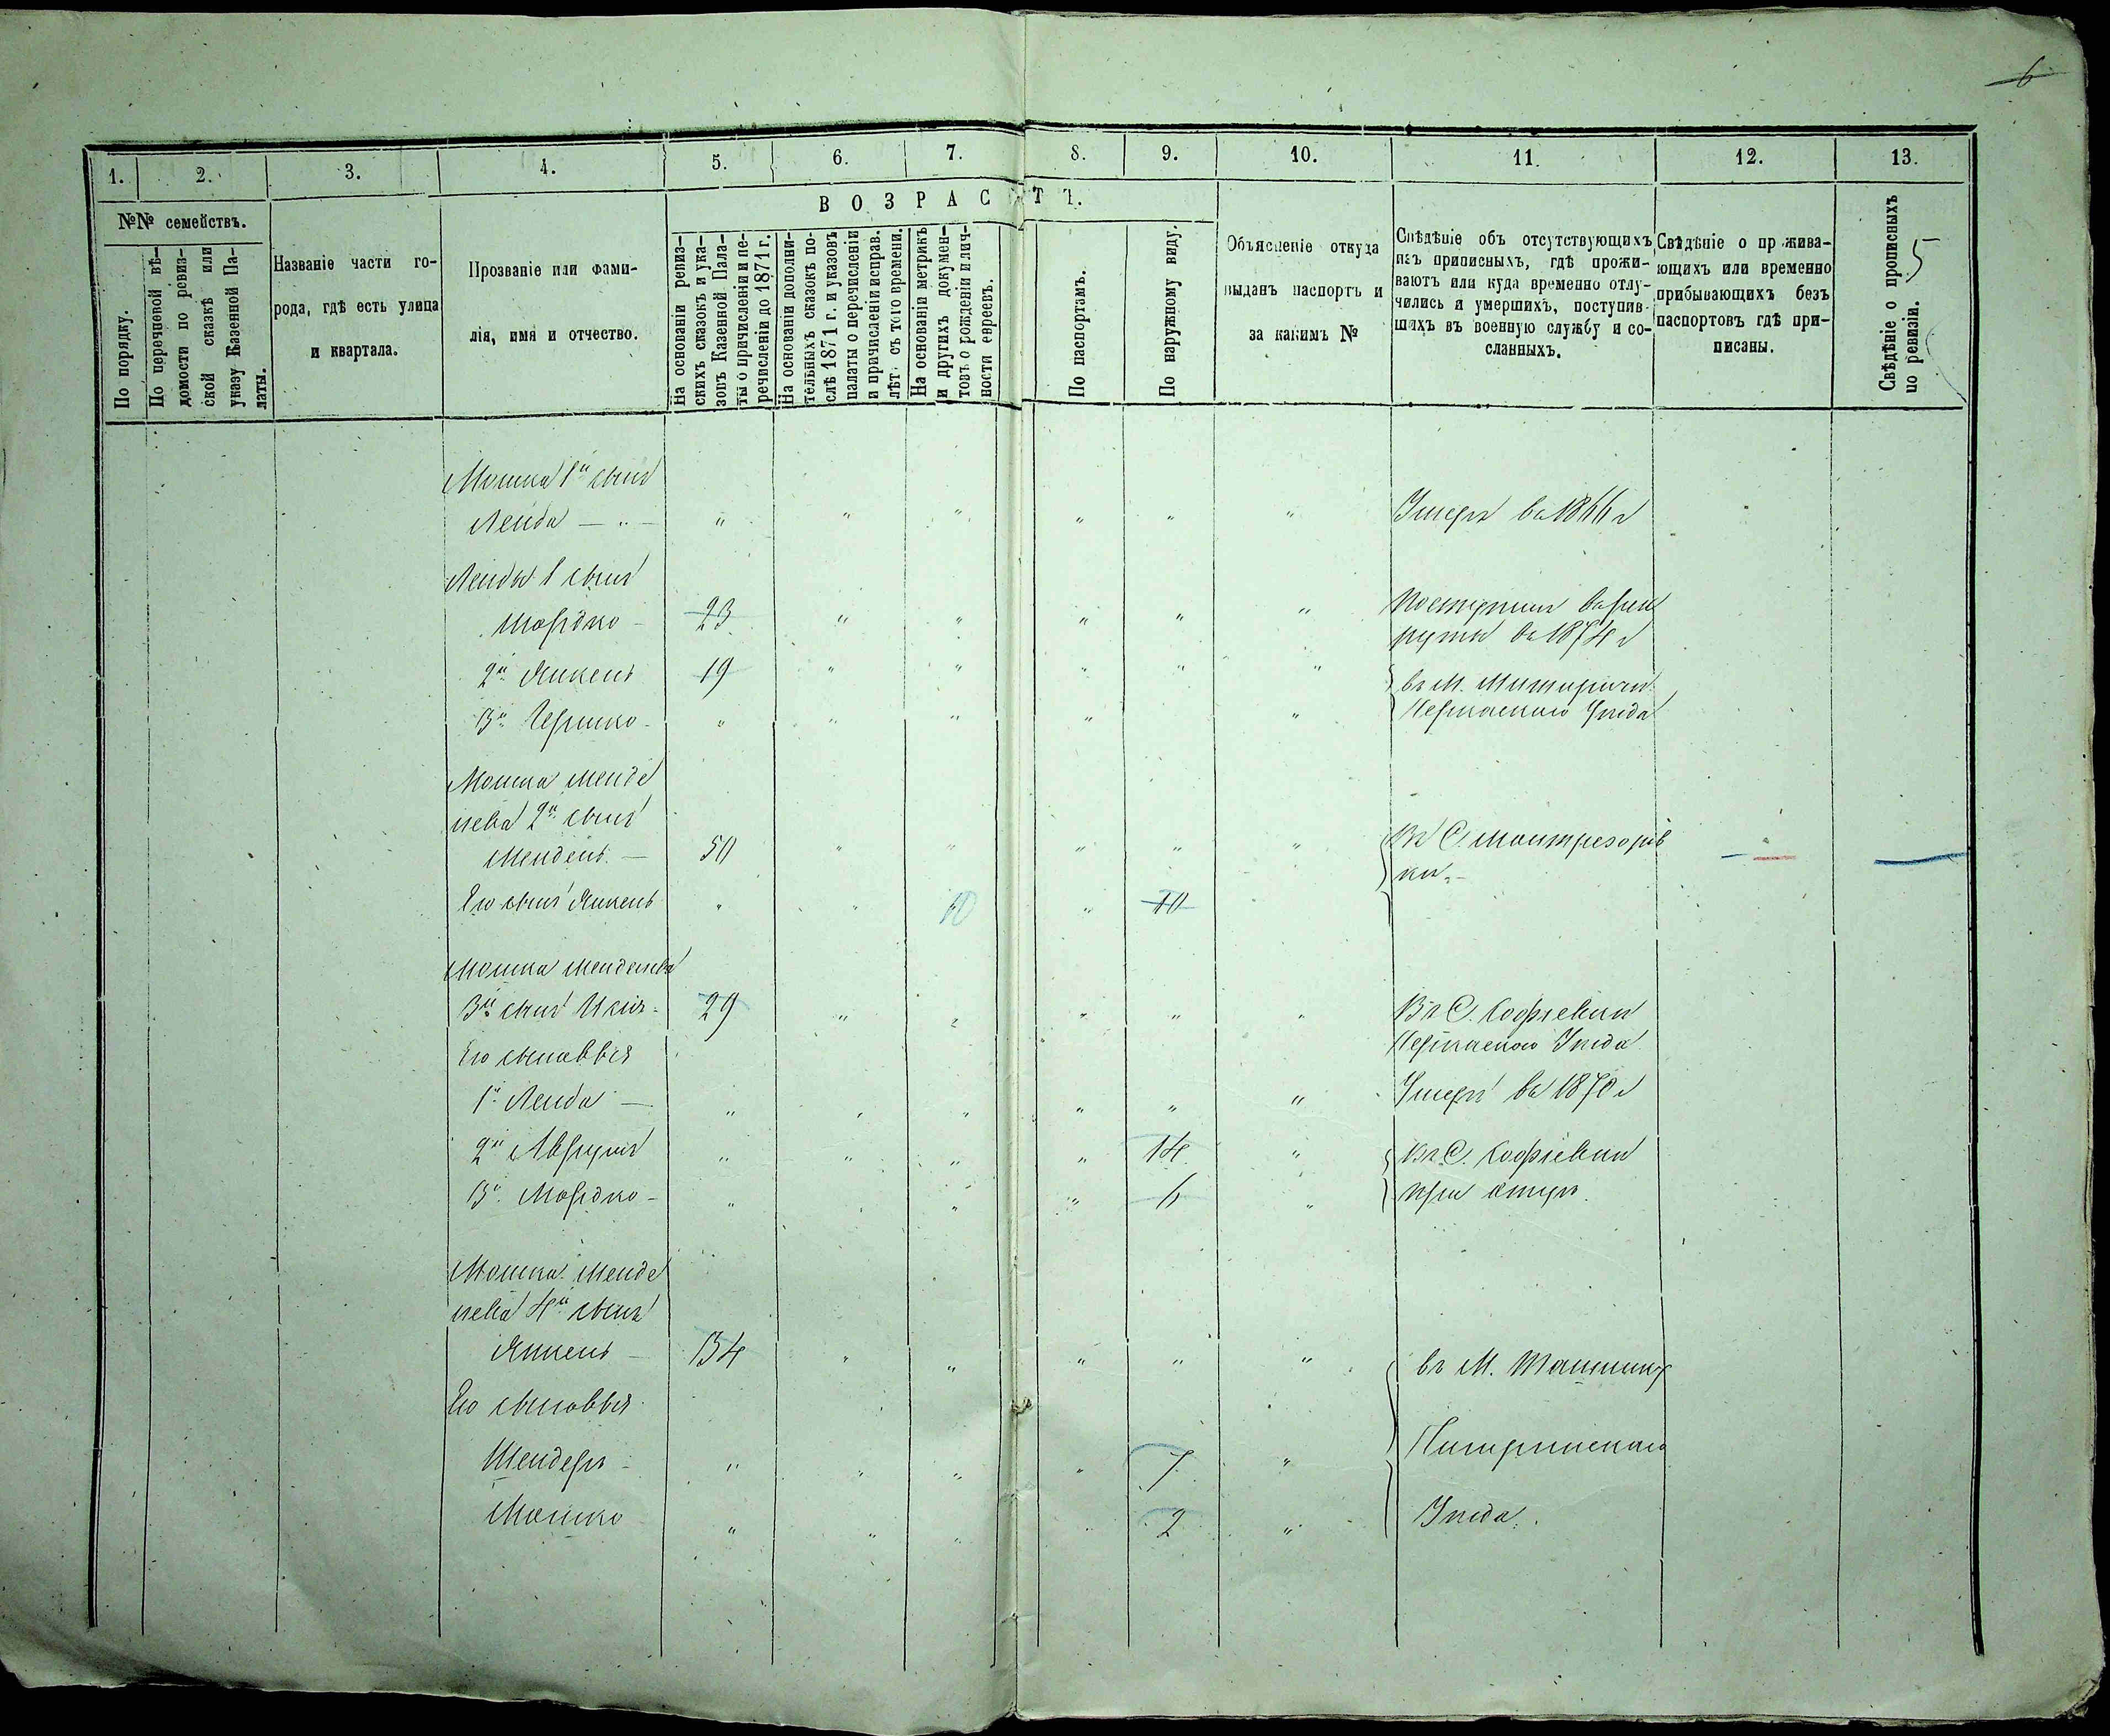 6
1. 2. 3. 4. 5. 6. 7. 8. 9. 10. 11. 12. 13.
ВОЗРАСТЪ.
№№ семействъ.
По порядку.
По перечневой вѣ-
домости по ревиз-
ской сказкѣ или
указу Казенной Па-
латы.
Названіе части го-
рода, гдѣ есть улица
и квартала.
Прозваніе или фами-
лія, имя и отчество.
На основаніи ревиз-
скихъ сказокъ и ука-
зовъ Казенной Пала-
ты о причисленіи и пе-
речисленіи до 1871 г.
На основаніи дополни-
тельныхъ сказокъ по-
слѣ 1871 г. и указовъ
палаты о перечисленіи
и причисленіи исправ.
лѣт. съ того времени.
На основаніи метрикъ
и другихъ докумен-
товъ о рожденіи и лич-
ности евреевъ.
По паспортамъ.
По наружному виду.
Объясненіе откуда
выданъ паспортъ и
за какимъ №
Свѣдѣніе объ отсутствующихъ
изъ приписныхъ, гдѣ прожи-
ваютъ или куда временно отлу-
чились и умершихъ, поступив-
шихъ въ военную службу и со-
сланныхъ.
Свѣдѣніе о прожива-
ющихъ или временно
прибывающихъ безъ
паспортовъ гдѣ при-
писаны.
Свѣдѣніе о прописныхъ
по ревизіи.
5
Мошка 1й сынъ
Лейба — „ — „ „ „ „ „ „ Умеръ въ 1866 г
Лейбы 1 сынъ
Мордко 23 „ „ „ „ „ Поступилъ въ рек
руты въ 1874 г
2й Янкель 19 „ „ „ „ „ въ М.
3й Гершко „ „ „ „ „ Черкаскаго Уѣзда
Мошка Менде
лева 2й сынъ
Мендель — 50 „ „ „ „ „ Въ С. Мотрезоров
ки
Его сынъ Янкель „ „ 10 „ 10
Мошка Менделева
3й сынъ 29 „ „ „ „ „ Въ С. Софіевки
Черкаскаго Уѣзда
Его сыновья
1й Лейба — „ „ „ „ „ „ Умеръ въ 1870 г
2й Аврумъ „ „ „ „ 14 „ Въ С. Софіевки
3й Мордко — „ „ „ 6 „ при отцѣ.
Мошка Менде
лева 4й сынъ
Янкель — 34 „ „ „ „ „ въ М. Ташлыку
Его сыновья
Шендеръ „ „ „ „ 7 „ Чигиринскаго
Мошко „ „ „ 2 „ Уѣзда.